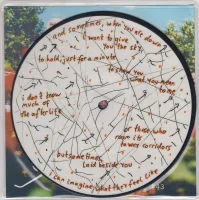 and sometimes, when you are down
I want to give
you the sky
to hold, just for a minute
to show you
what you mean
to me
I don't know
much of
the afterlife
or those who
roam its
tower corridors
but sometimes
laid beside you
I can imagine what they feel like